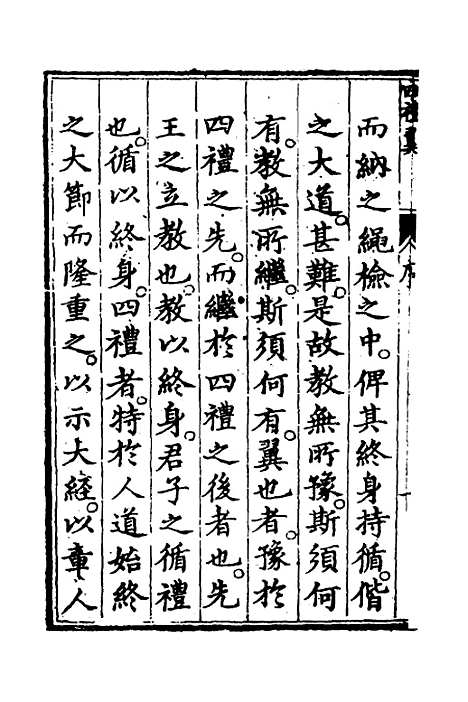 四禮翼
序
而納之繩檢之中。俾其終身持循。偕
之大道。甚難。是故教無所豫。斯須何
有。教無所繼。斯須何有。翼也者。豫於
四禮之先。而繼於四禮之後者也。先
王之立教也。教以終身。君子之循禮
也。循以終身。四禮者。特於人道始終
之大節而隆重之。以示大經。以重人